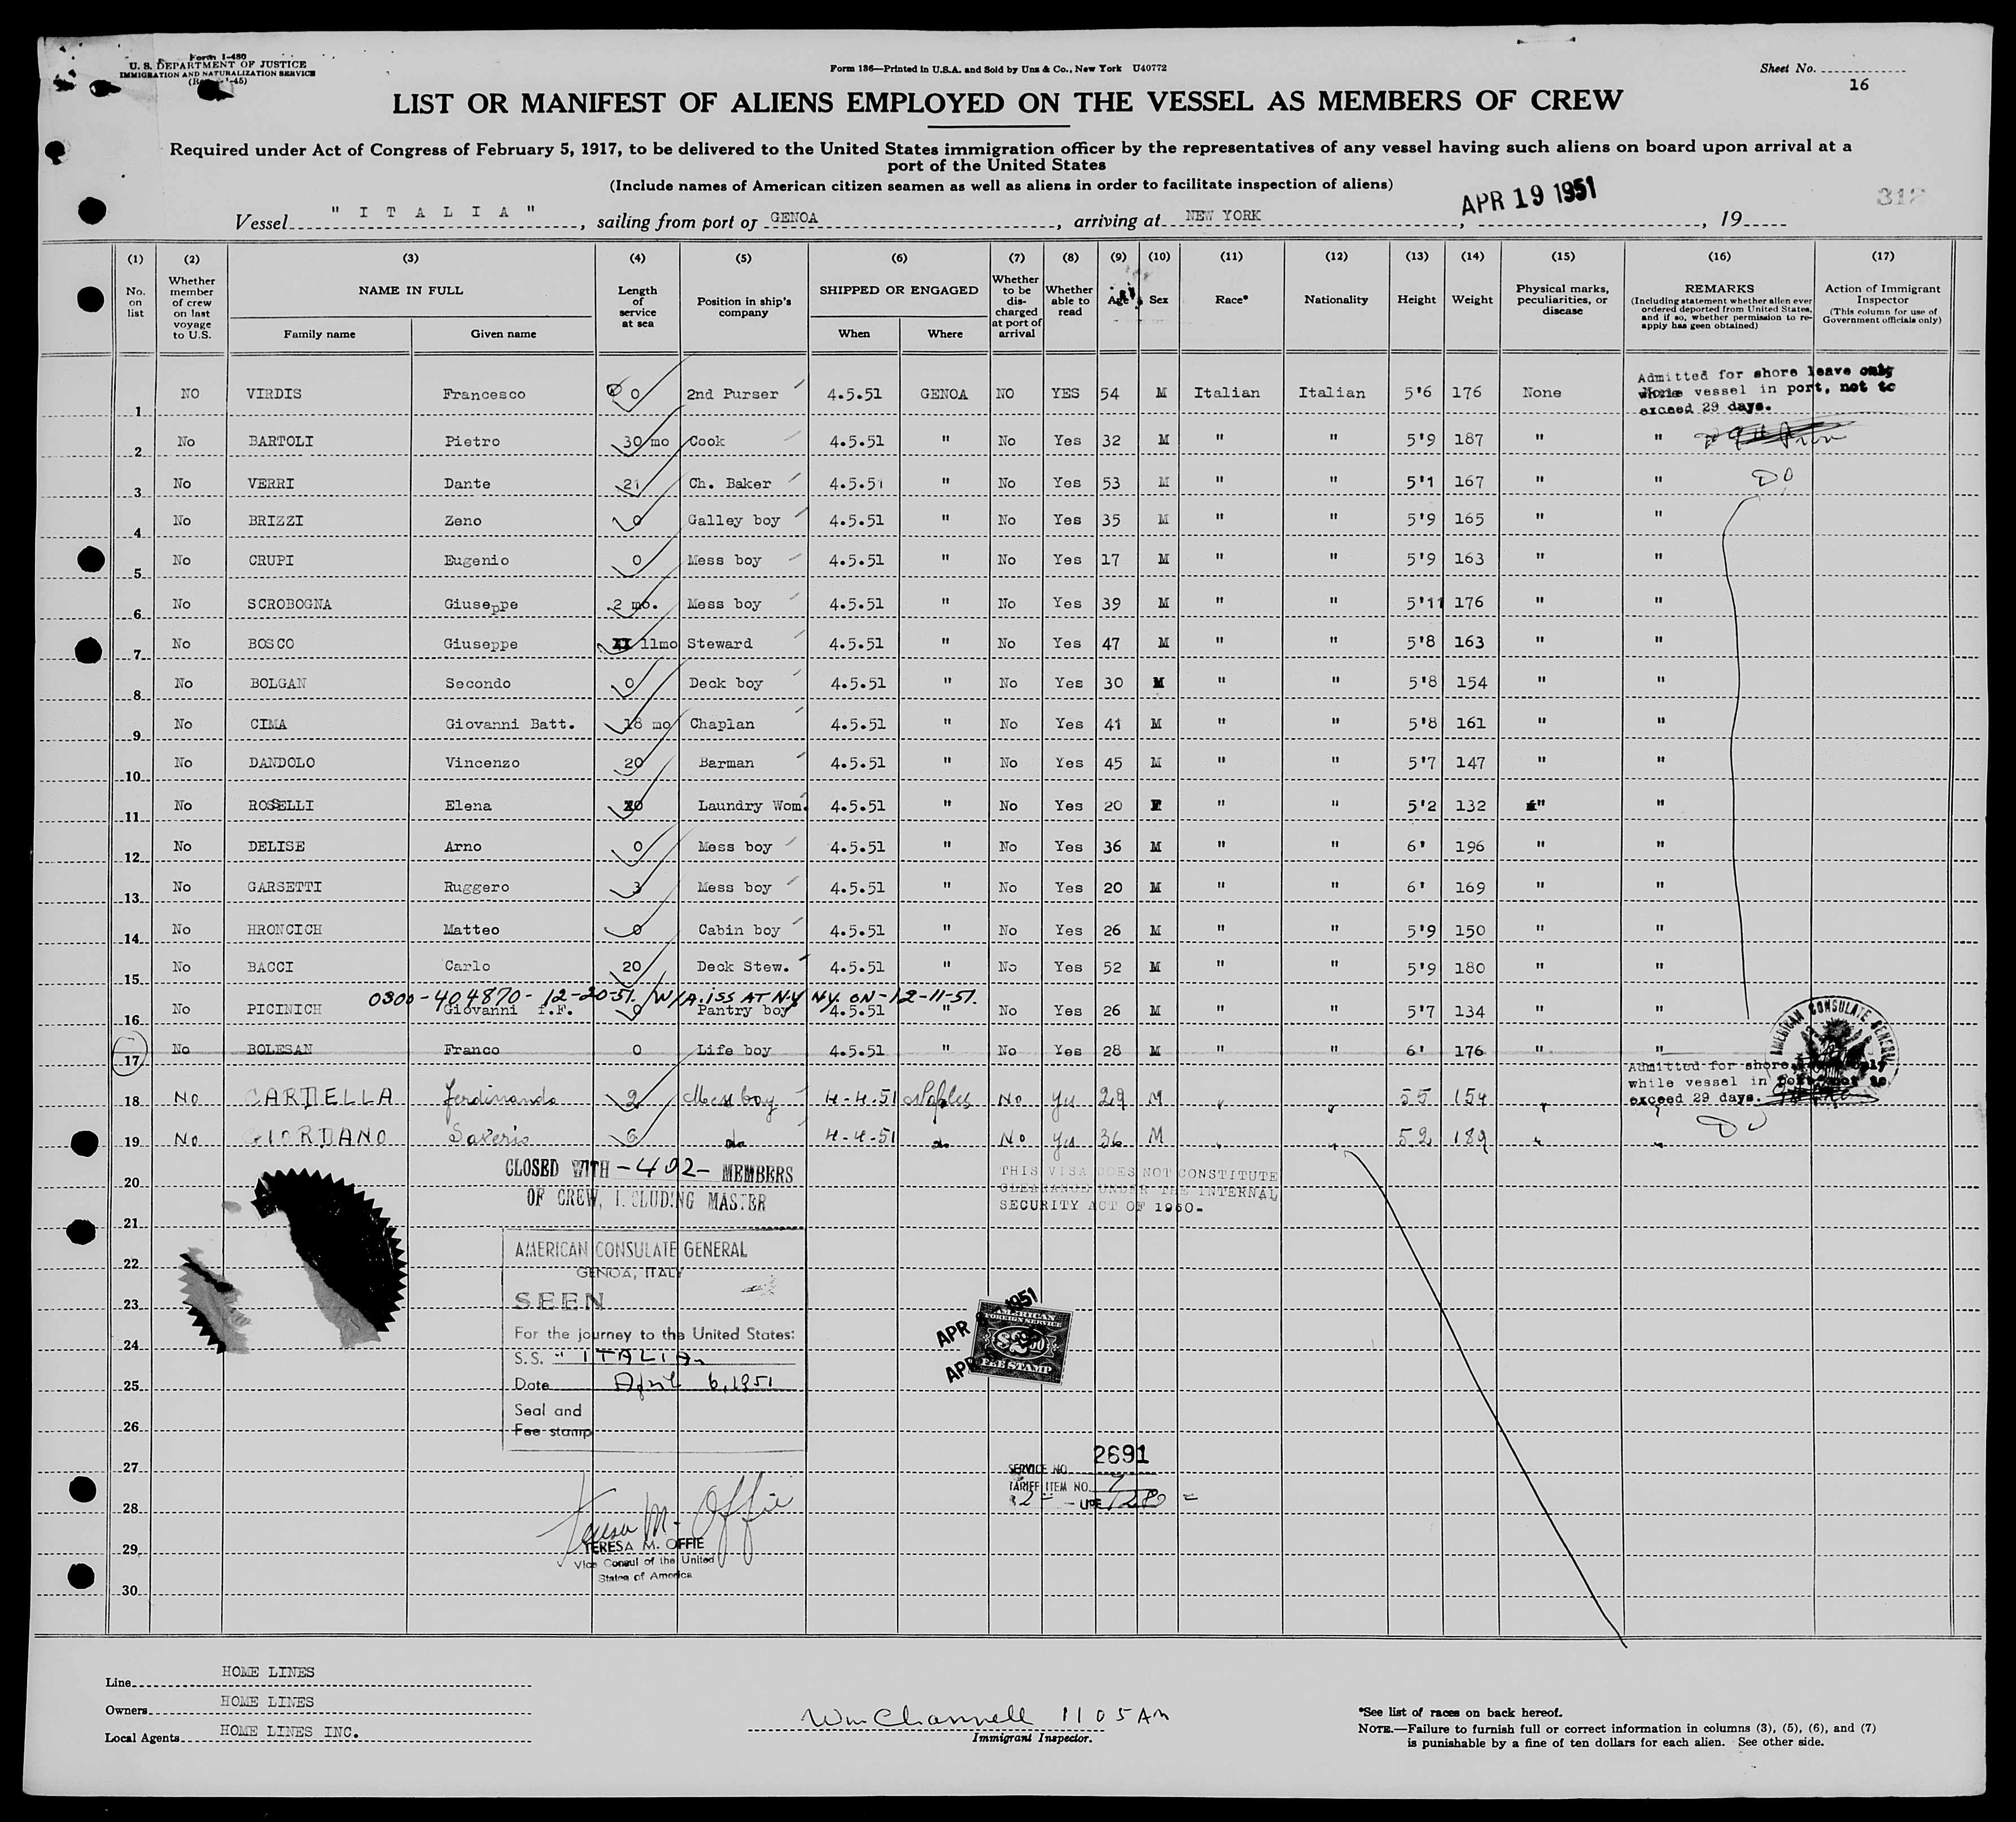 Form I-480
U. S. DEPARTMENT OF JUSTICE
IMMIGRATION AND NATURALIZATION SERVICE
Form 136—Printed in U.S.A. and Sold by Unz & Co., New York U40772
Sheet No.
16
LIST OR MANIFEST OF ALIENS EMPLOYED ON THE VESSEL AS MEMBERS OF CREW
Required under Act of Congress of February 5, 1917, to be delivered to the United States immigration officer by the representatives of any vessel having such aliens on board upon arrival at a
port of the United States
(Include names of American citizen seamen as well as aliens in order to facilitate inspection of aliens)
Vessel " I T A L I A ", sailing from port of GENOA, arriving at NEW YORK, APR 19 1951, 19
318
(1) (2) (3) (4) (5) (6) (7) (8) (9) (10) (11) (12) (13) (14) (15) (16) (17)
No. on list
Whether member of crew on last voyage to U.S.
NAME IN FULL
Family name Given name
Length of service at sea
Position in ship's company
SHIPPED OR ENGAGED
When Where
Whether to be discharged at port of arrival
Whether able to read
Age
Sex
Race*
Nationality
Height
Weight
Physical marks, peculiarities, or disease
REMARKS
(Including statement whether alien ever ordered deported from United States, and if so, whether permission to re-apply has geen obtained)
Action of Immigrant Inspector
(This column for use of Government officials only)
Admitted for shore leave only
while vessel in port, not to
exceed 29 days.
1 NO VIRDIS Francesco 0 2nd Purser 4.5.51 GENOA NO YES 54 M Italian Italian 5'6 176 None
2 No BARTOLI Pietro 30 mo Cook 4.5.51 " No Yes 32 M " " 5'9 187 " "
3 No VERRI Dante 21 Ch. Baker 4.5.51 " No Yes 53 M " " 5'1 167 " " Do
4 No BRIZZI Zeno 0 Galley boy 4.5.51 " No Yes 35 M " " 5'9 165 " "
5 No CRUPI Eugenio 0 Mess boy 4.5.51 " No Yes 17 M " " 5'9 163 " "
6 No SCROBOGNA Giuseppe 2 mo. Mess boy 4.5.51 " No Yes 39 M " " 5'11 176 " "
7 No BOSCO Giuseppe 11mo Steward 4.5.51 " No Yes 47 M " " 5'8 163 " "
8 No BOLGAN Secondo 0 Deck boy 4.5.51 " No Yes 30 M " " 5'8 154 " "
9 No CIMA Giovanni Batt. 18 mo Chaplan 4.5.51 " No Yes 41 M " " 5'8 161 " "
10 No DANDOLO Vincenzo 20 Barman 4.5.51 " No Yes 45 M " " 5'7 147 " "
11 No ROSELLI Elena 0 Laundry Wom. 4.5.51 " No Yes 20 F " " 5'2 132 " "
12 No DELISE Arno 0 Mess boy 4.5.51 " No Yes 36 M " " 6' 196 " "
13 No GARSETTI Ruggero 3 Mess boy 4.5.51 " No Yes 20 M " " 6' 169 " "
14 No HRONCICH Matteo 0 Cabin boy 4.5.51 " No Yes 26 M " " 5'9 150 " "
15 No BACCI Carlo 20 Deck Stew. 4.5.51 " No Yes 52 M " " 5'9 180 " "
0300-404870- 12-20-51. W/A. iss AT N.Y. N.Y. ON -12-11-51.
16 No PICINICH Giovanni f.F. 0 Pantry boy 4.5.51 " No Yes 26 M " " 5'7 134 " "
17 No BOLESAN Franco 0 Life boy 4.5.51 " No Yes 28 M " " 6' 176 " "
AMERICAN CONSULATE GENERAL
Admitted for shore only
while vessel in port, not to
exceed 29 days.
18 No CARDELLA Ferdinando 2 Mess boy 4-4-51 Naples No Yes 29 M " " 5 5 154 "
19 No GIORDANO Saverio 6 do 4-4-51 do No Yes 36 M " " 5 2 189 " " Do
20
21
22
23
24
25
26
27
28
29
30
CLOSED WITH -402- MEMBERS
OF CREW, INCLUDING MASTER
THIS VISA DOES NOT CONSTITUTE
CLEARANCE UNDER THE INTERNAL
SECURITY ACT OF 1950-
AMERICAN CONSULATE GENERAL
GENOA, ITALY
SEEN
For the journey to the United States:
S.S. "ITALIA"
Date April 6, 1951
Seal and
Fee stamp
APR 1951
APR
AMERICAN
FOREIGN SERVICE
$2.00
FEE STAMP
2691
SERVICE NO.
TARIFF ITEM NO. 7
$2= - LIRE 1280 =
Teresa M. Offie
TERESA M. OFFIE
Vice Consul of the United
States of America
Line HOME LINES
Owners HOME LINES
Local Agents HOME LINES INC.
Wm Channell 11 05 AM
Immigrant Inspector.
*See list of races on back hereof.
NOTE.—Failure to furnish full or correct information in columns (3), (5), (6), and (7)
is punishable by a fine of ten dollars for each alien. See other side.